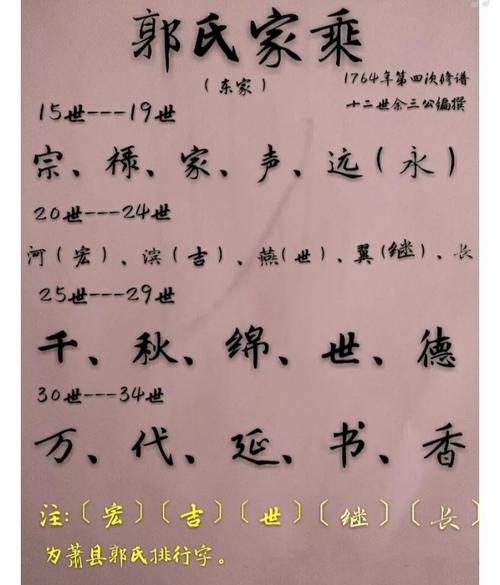 郭氏家乘
(东家)
1764年第四次修谱
十二世余三公编撰
15世---19世
宗、禄、家、声、远(永)
20世---24世
河(宏)、滨(吉)、燕(世)、翼(继)、长
25世---29世
千、秋、绵、世、德
30世---34世
万、代、延、书、香
注:〔宏〕〔吉〕〔世〕〔继〕〔长〕
为萧县郭氏排行字。